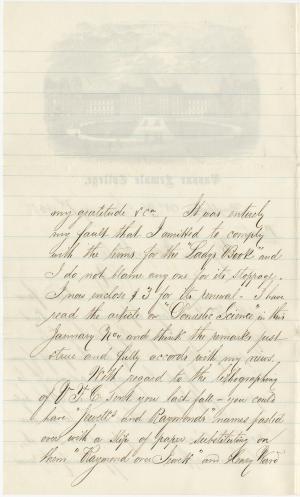 my gratitude &c. It was entirely
my fault that I omitted to comply
with the terms for the "Lady's Book" and
I do not blame any one for its stoppage.
I now enclose $3 for its renewal - I have
read the article on "Domestic Science" in this
January No. and think the remarks just
and fully accords with my views.
With regard to the lithographing
of V. F. C. sent you last fall - you could
have "Jewett's and Raymond's" names pasted
over with a slip of paper substituting on
them "Raymond over Jewett" and Henry Ward